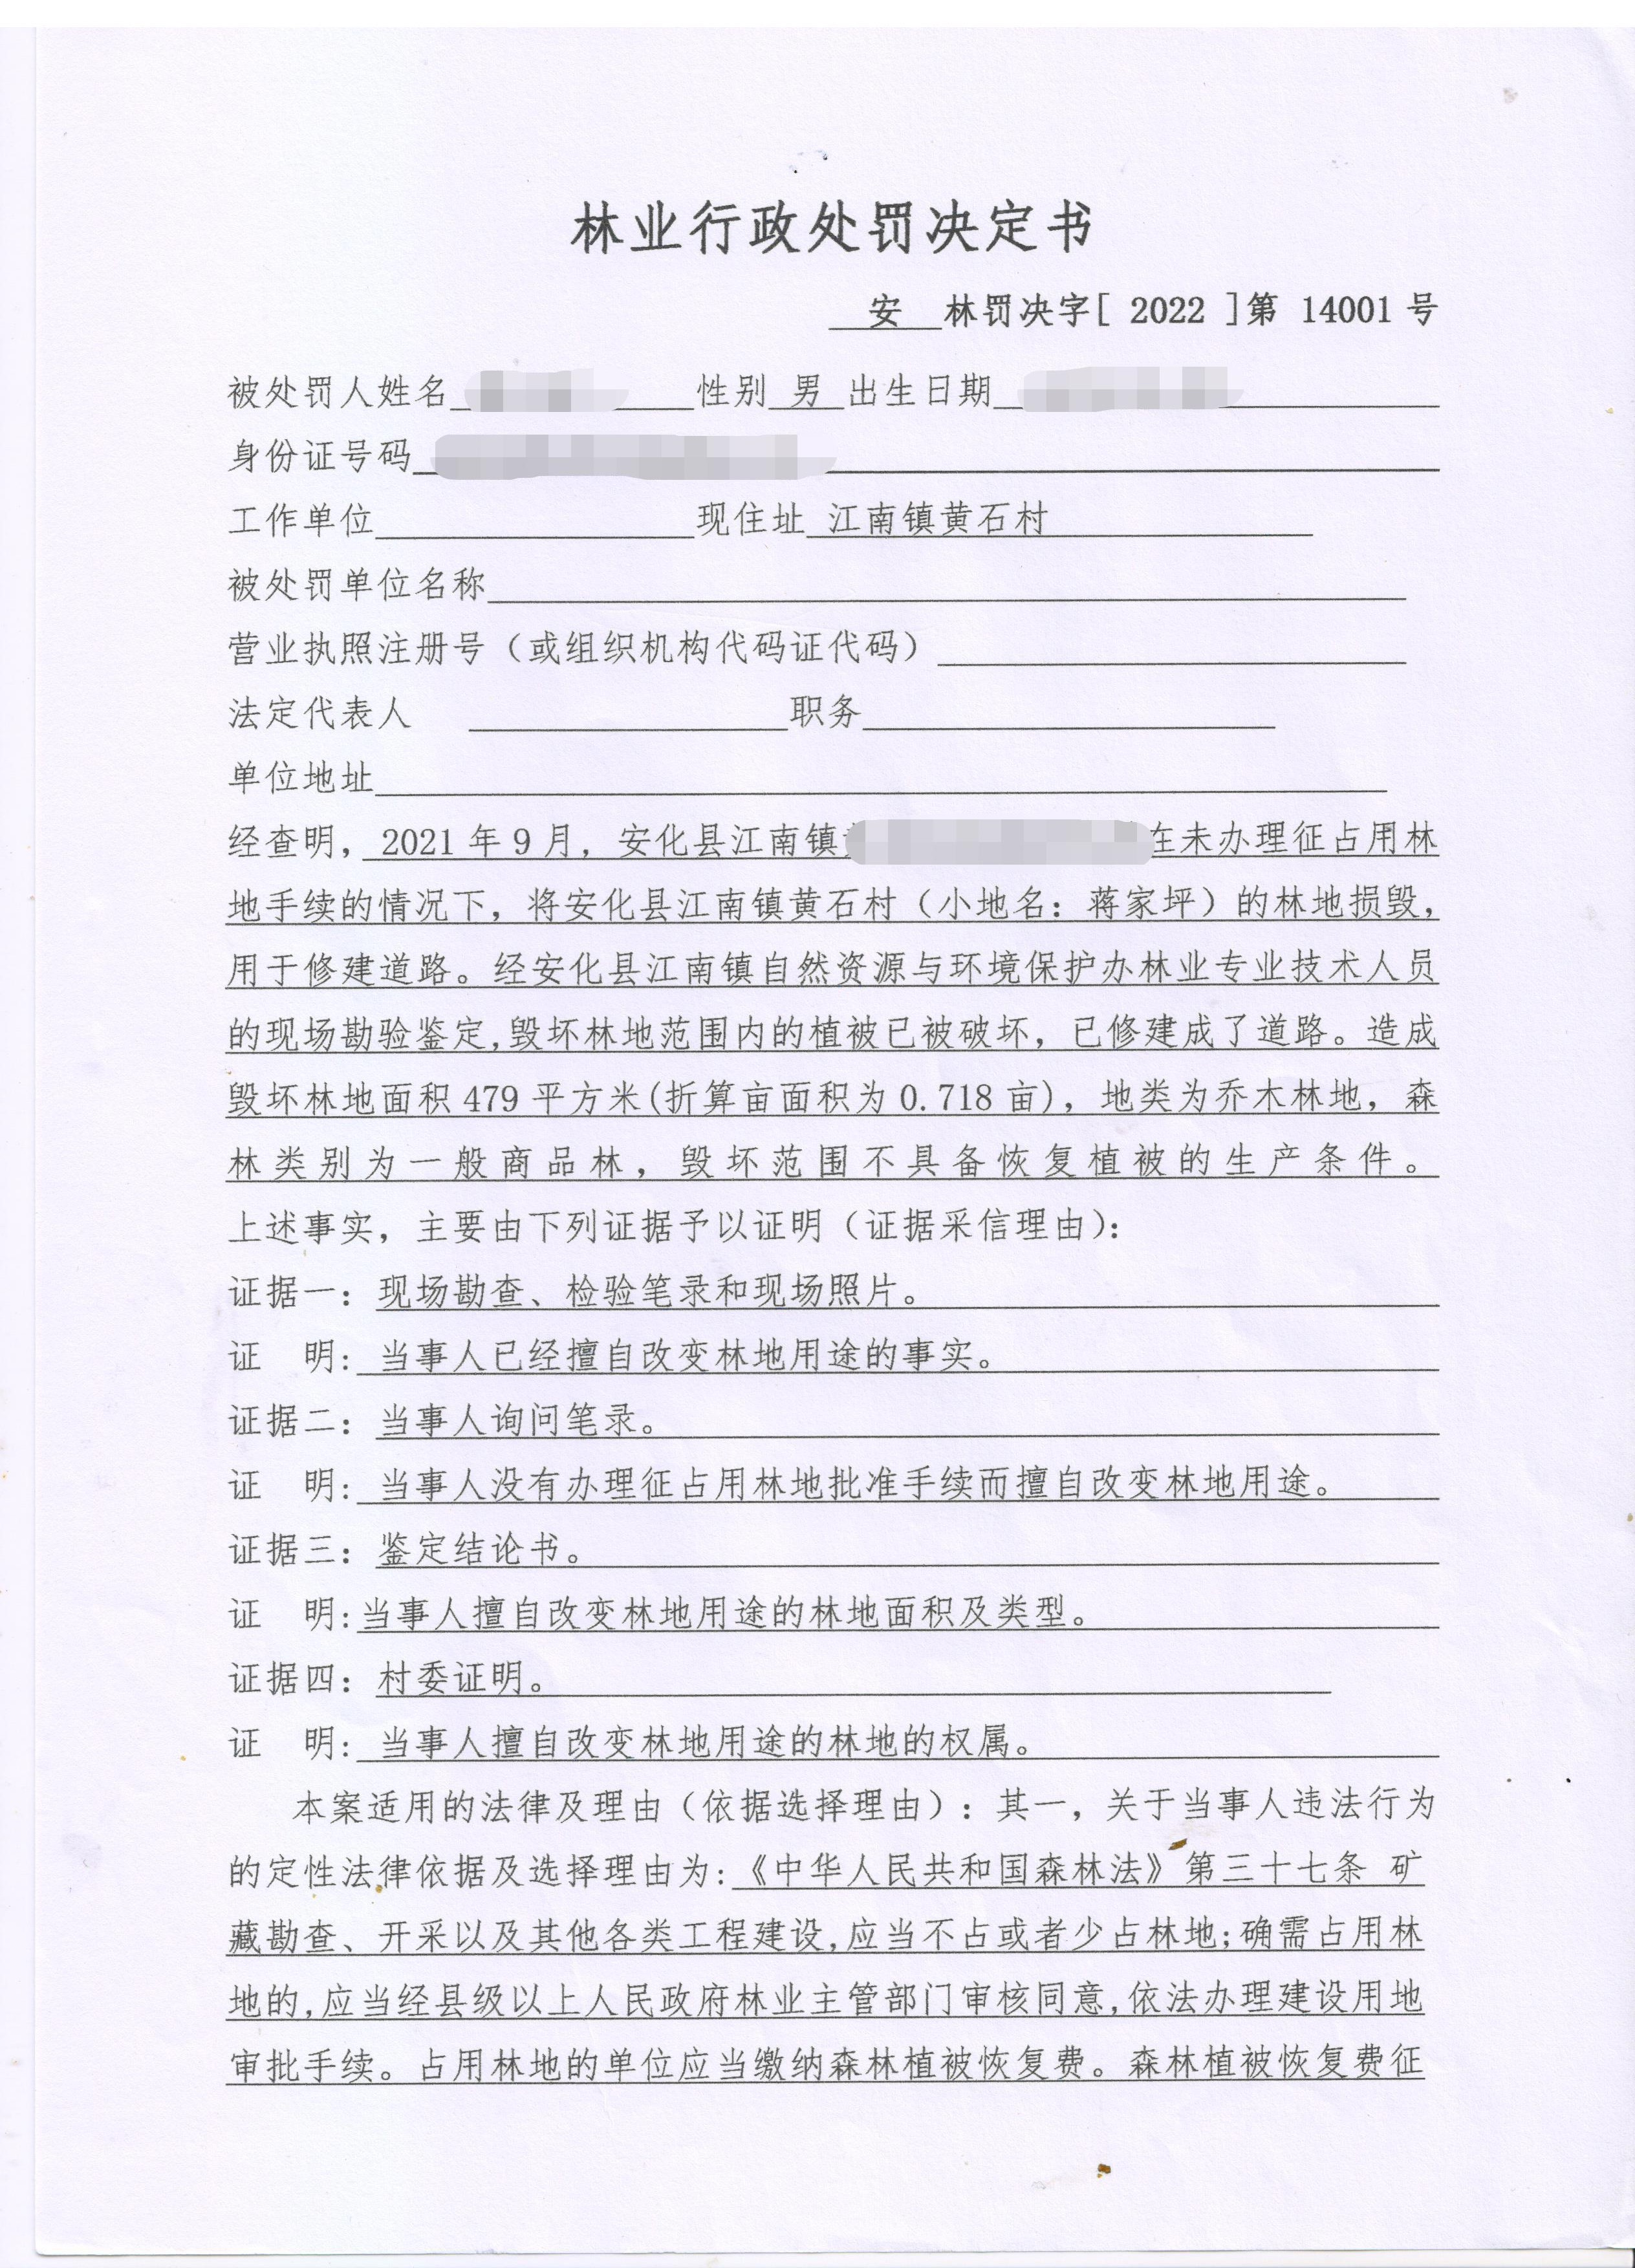 林业行政处罚决定书
安 林罚决字[ 2022 ]第 14001 号
被处罚人姓名 性别 男 出生日期
身份证号码
工作单位 现住址 江南镇黄石村
被处罚单位名称
营业执照注册号（或组织机构代码证代码）
法定代表人 职务
单位地址
经查明，2021 年 9 月，安化县江南镇 在未办理征占用林
地手续的情况下，将安化县江南镇黄石村（小地名：蒋家坪）的林地损毁，
用于修建道路。经安化县江南镇自然资源与环境保护办林业专业技术人员
的现场勘验鉴定,毁坏林地范围内的植被已被破坏，已修建成了道路。造成
毁坏林地面积 479 平方米(折算亩面积为 0.718 亩)，地类为乔木林地，森
林类别为一般商品林，毁坏范围不具备恢复植被的生产条件。
上述事实，主要由下列证据予以证明（证据采信理由）：
证据一：现场勘查、检验笔录和现场照片。
证 明：当事人已经擅自改变林地用途的事实。
证据二：当事人询问笔录。
证 明：当事人没有办理征占用林地批准手续而擅自改变林地用途。
证据三：鉴定结论书。
证 明：当事人擅自改变林地用途的林地面积及类型。
证据四：村委证明。
证 明：当事人擅自改变林地用途的林地的权属。
本案适用的法律及理由（依据选择理由）：其一，关于当事人违法行为
的定性法律依据及选择理由为：《中华人民共和国森林法》第三十七条 矿
藏勘查、开采以及其他各类工程建设,应当不占或者少占林地;确需占用林
地的,应当经县级以上人民政府林业主管部门审核同意,依法办理建设用地
审批手续。占用林地的单位应当缴纳森林植被恢复费。森林植被恢复费征